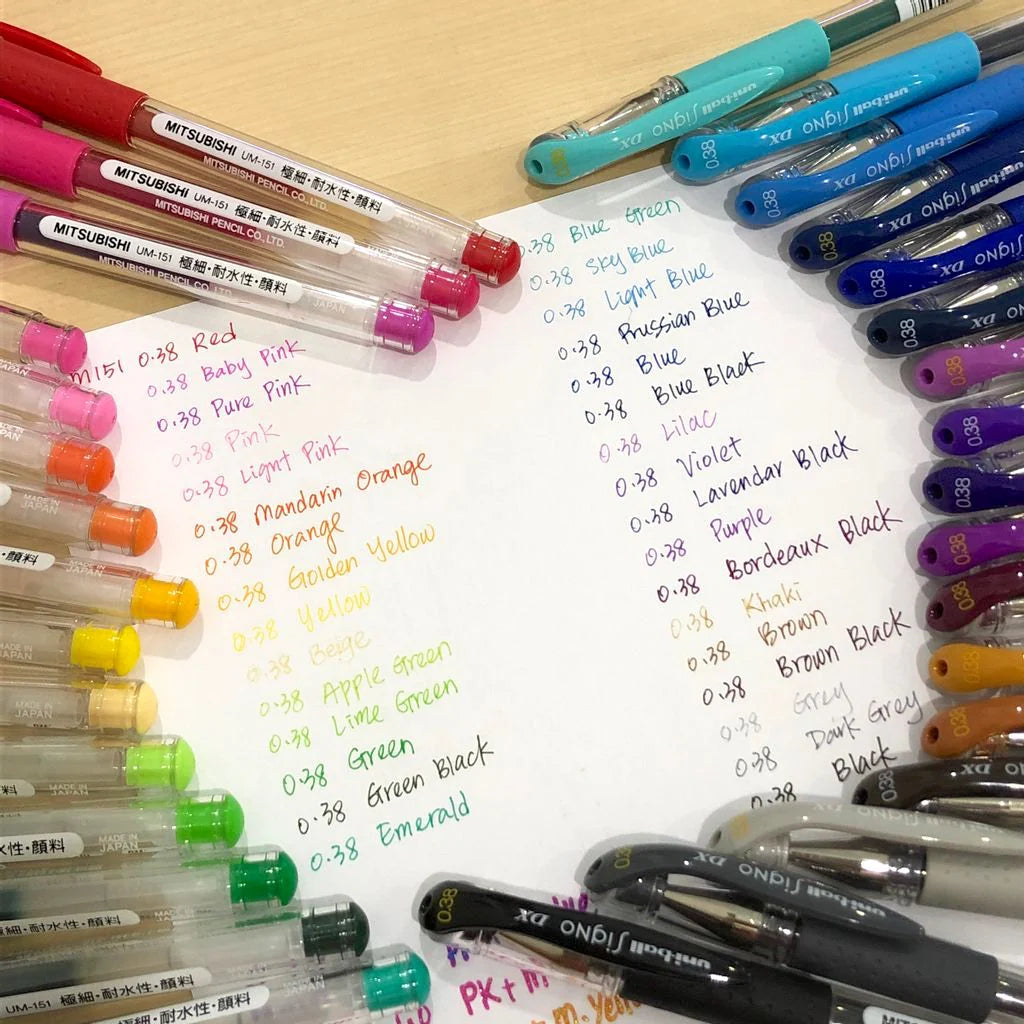 MITSUBISHI UM-151 極細・耐水性・顔料
MITSUBISHI PENCIL CO., LTD.
MITSUBISHI UM-151 極細・耐水性・顔料
MITSUBISHI PENCIL CO., LTD.
MITSUBISHI UM-151 極細・耐水性・顔料
MITSUBISHI PENCIL CO., LTD.
JAPAN
m151 0.38 Red
0.38 Baby Pink
0.38 Pure Pink
0.38 Pink
0.38 Light Pink
0.38 Mandarin Orange
0.38 Orange
0.38 Golden Yellow
0.38 Yellow
0.38 Beige
0.38 Apple Green
0.38 Lime Green
0.38 Green
0.38 Green Black
0.38 Emerald
0.38 Blue Green
0.38 Sky Blue
0.38 Light Blue
0.38 Prussian Blue
0.38 Blue
0.38 Blue Black
0.38 Lilac
0.38 Violet
0.38 Lavendar Black
0.38 Purple
0.38 Bordeaux Black
0.38 Khaki
0.38 Brown
0.38 Brown Black
0.38 Grey
0.38 Dark Grey
0.38 Black
uni-ball Signo DX
0.38 uni-ball Signo DX
0.38 uni-ball Signo DX
0.38 uni-ball Signo DX
0.38 DX
0.38 DX
0.38
0.38
0.38
0.38
0.38
0.38
0.38
DX
uni-ball Signo DX
0.38 uni-ball Signo DX
MADE IN JAPAN
・顔料
MADE IN JAPAN
MADE IN JAPAN
MADE IN JAPAN
MADE IN JAPAN
性・顔料
MADE IN JAPAN
・耐水性・顔料
UM-151 極細・耐水性・顔料
・耐水性・顔料
PK + m
+ m. Yello